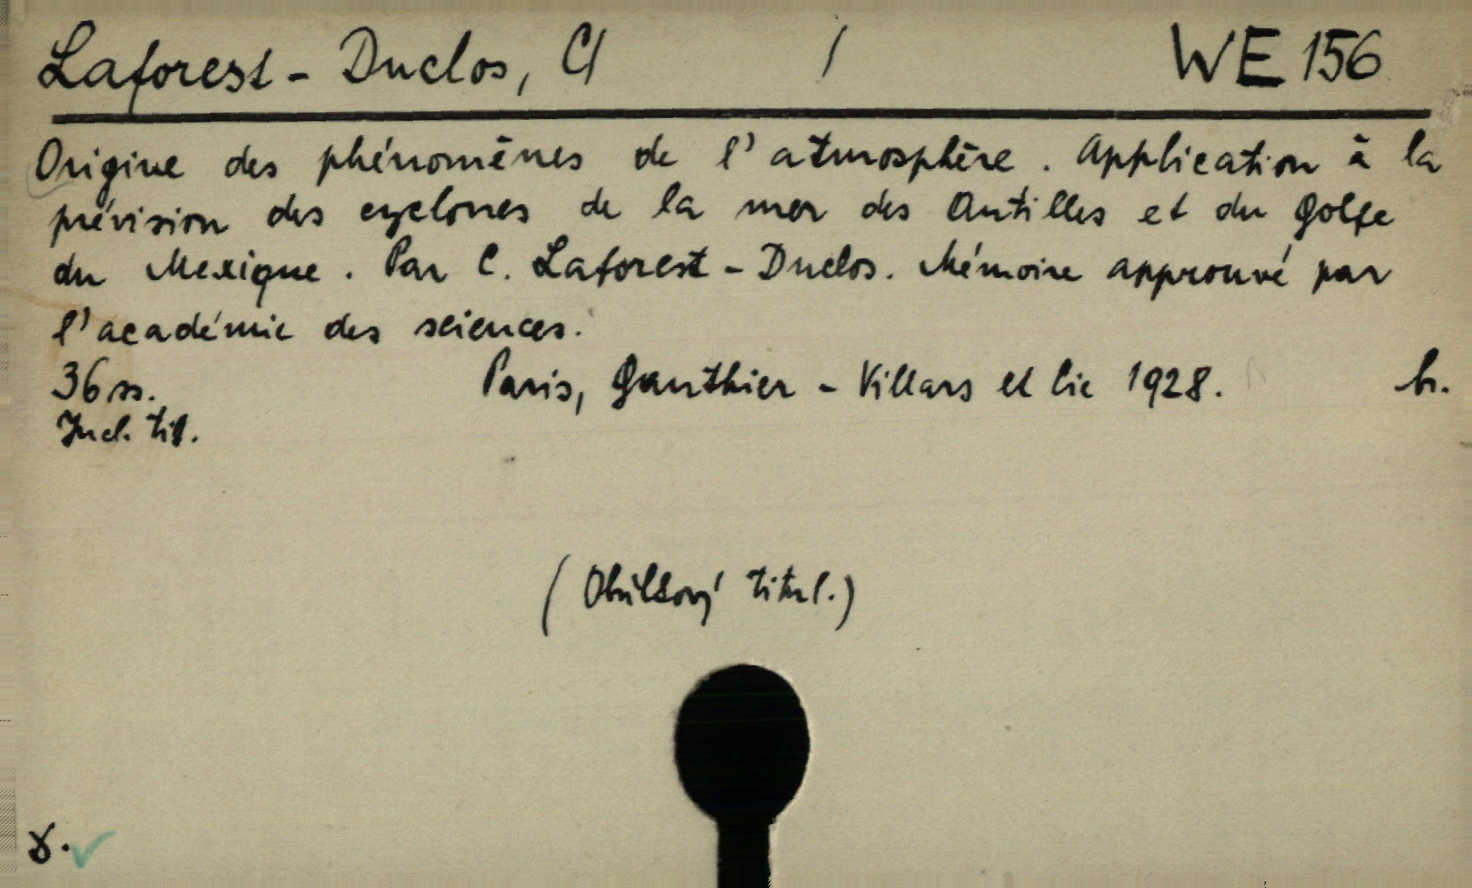 Laforest-Duclos, C/ / WE 156
Origine des phénomènes de l'atmosphère. Application à la
prévision des cyclones de la mer des Antilles et du Golfe
du Mexique. Par C. Laforest-Duclos. Mémoire approuvé par
l'académie des sciences.
36 ss. Paris, Gauthier-Villars et Cie 1928. br.
Incl. tit.
(Obálkový titul.)
8.